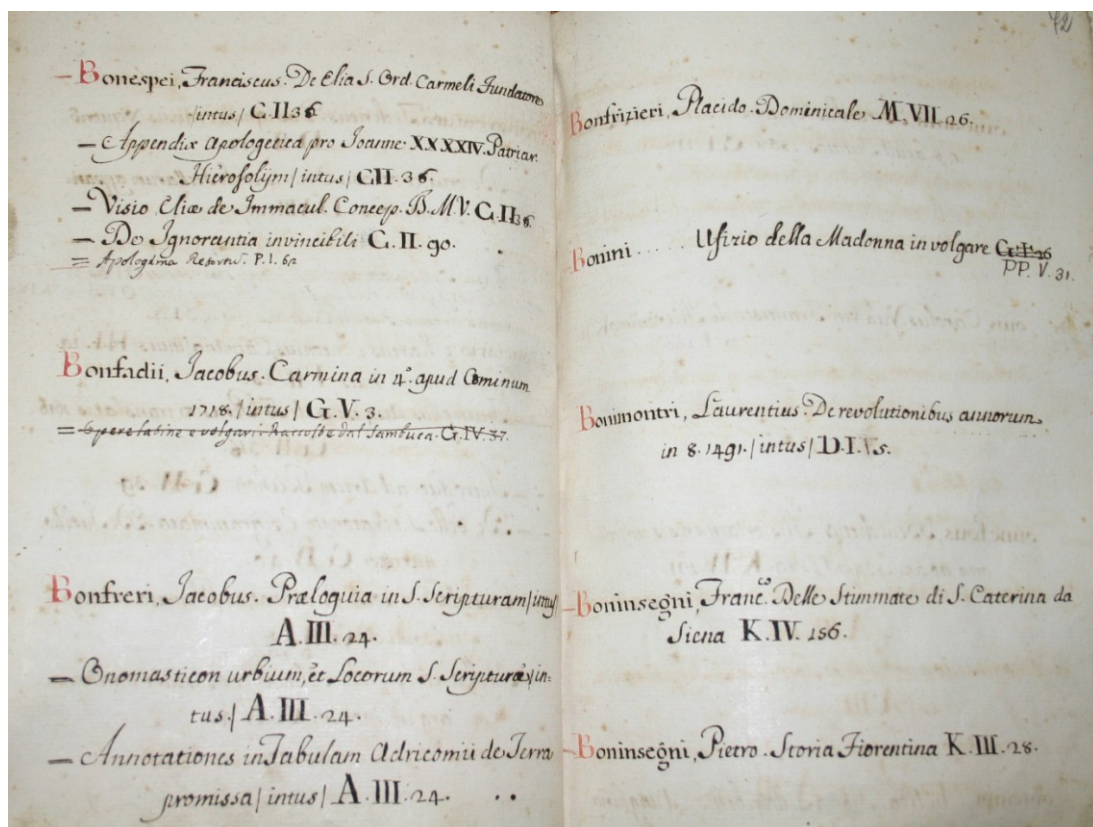 – Bonespei, Franciscus. De Elia S. Ord. Carmeli Fundatore
/intus/ G. II 36
– Appendix Apologetica pro Joanne XXXXIV. Patriar.
Hierosolym / intus / G II. 36.
– Visio Eliæ de Immacul. Concep. B. M. V. G. II 36
– De Ignorantia invincibili G. II. 90.
= P. I. 62
Bonfadii, Jacobus. Carmina in 4.º apud Cominum
1718. / intus / G. V. 3.
= Opere latine e volgari. Raccolte dal Sambuca. G. IV. 37.
Bonfreri, Jacobus. Præloquia in S. Scripturam / intus /
A. III. 24.
– Onomasticon urbium, et Locorum S. Scripturæ / in=
tus. / A. III. 24.
– Annotationes in Tabulam Adricomii de Terra
promissa / intus / A. III. 24.
72
Bonfrizieri, Placido. Dominicale M. VII. 26.
Bonini .... Ufizio della Madonna in volgare
PP. V. 31.
Bonimontri, Laurentius. De revolutionibus annorum
in 8. 1491. / intus / D. I. V5.
– Boninsegni, Franc.º Delle Stimmate di S. Caterina da
Siena K. IV. 156.
– Boninsegni, Pietro. Storia Fiorentina K. III. 28.